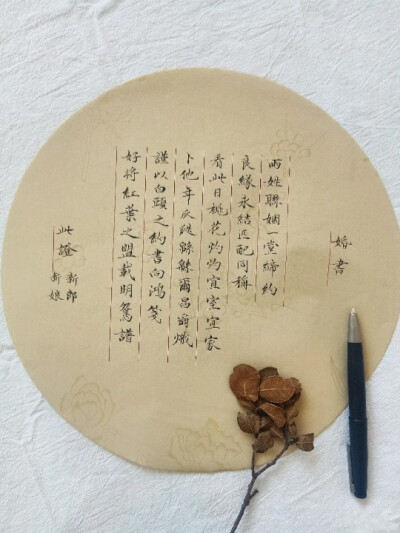 婚書
兩姓聯姻一堂締約
良緣永結匹配同稱
看此日桃花灼灼宜室宜家
卜他年瓜瓞緜緜爾昌爾熾
謹以白頭之約書向鴻箋
好將紅葉之盟載明鴛譜
此證
新郎
新娘